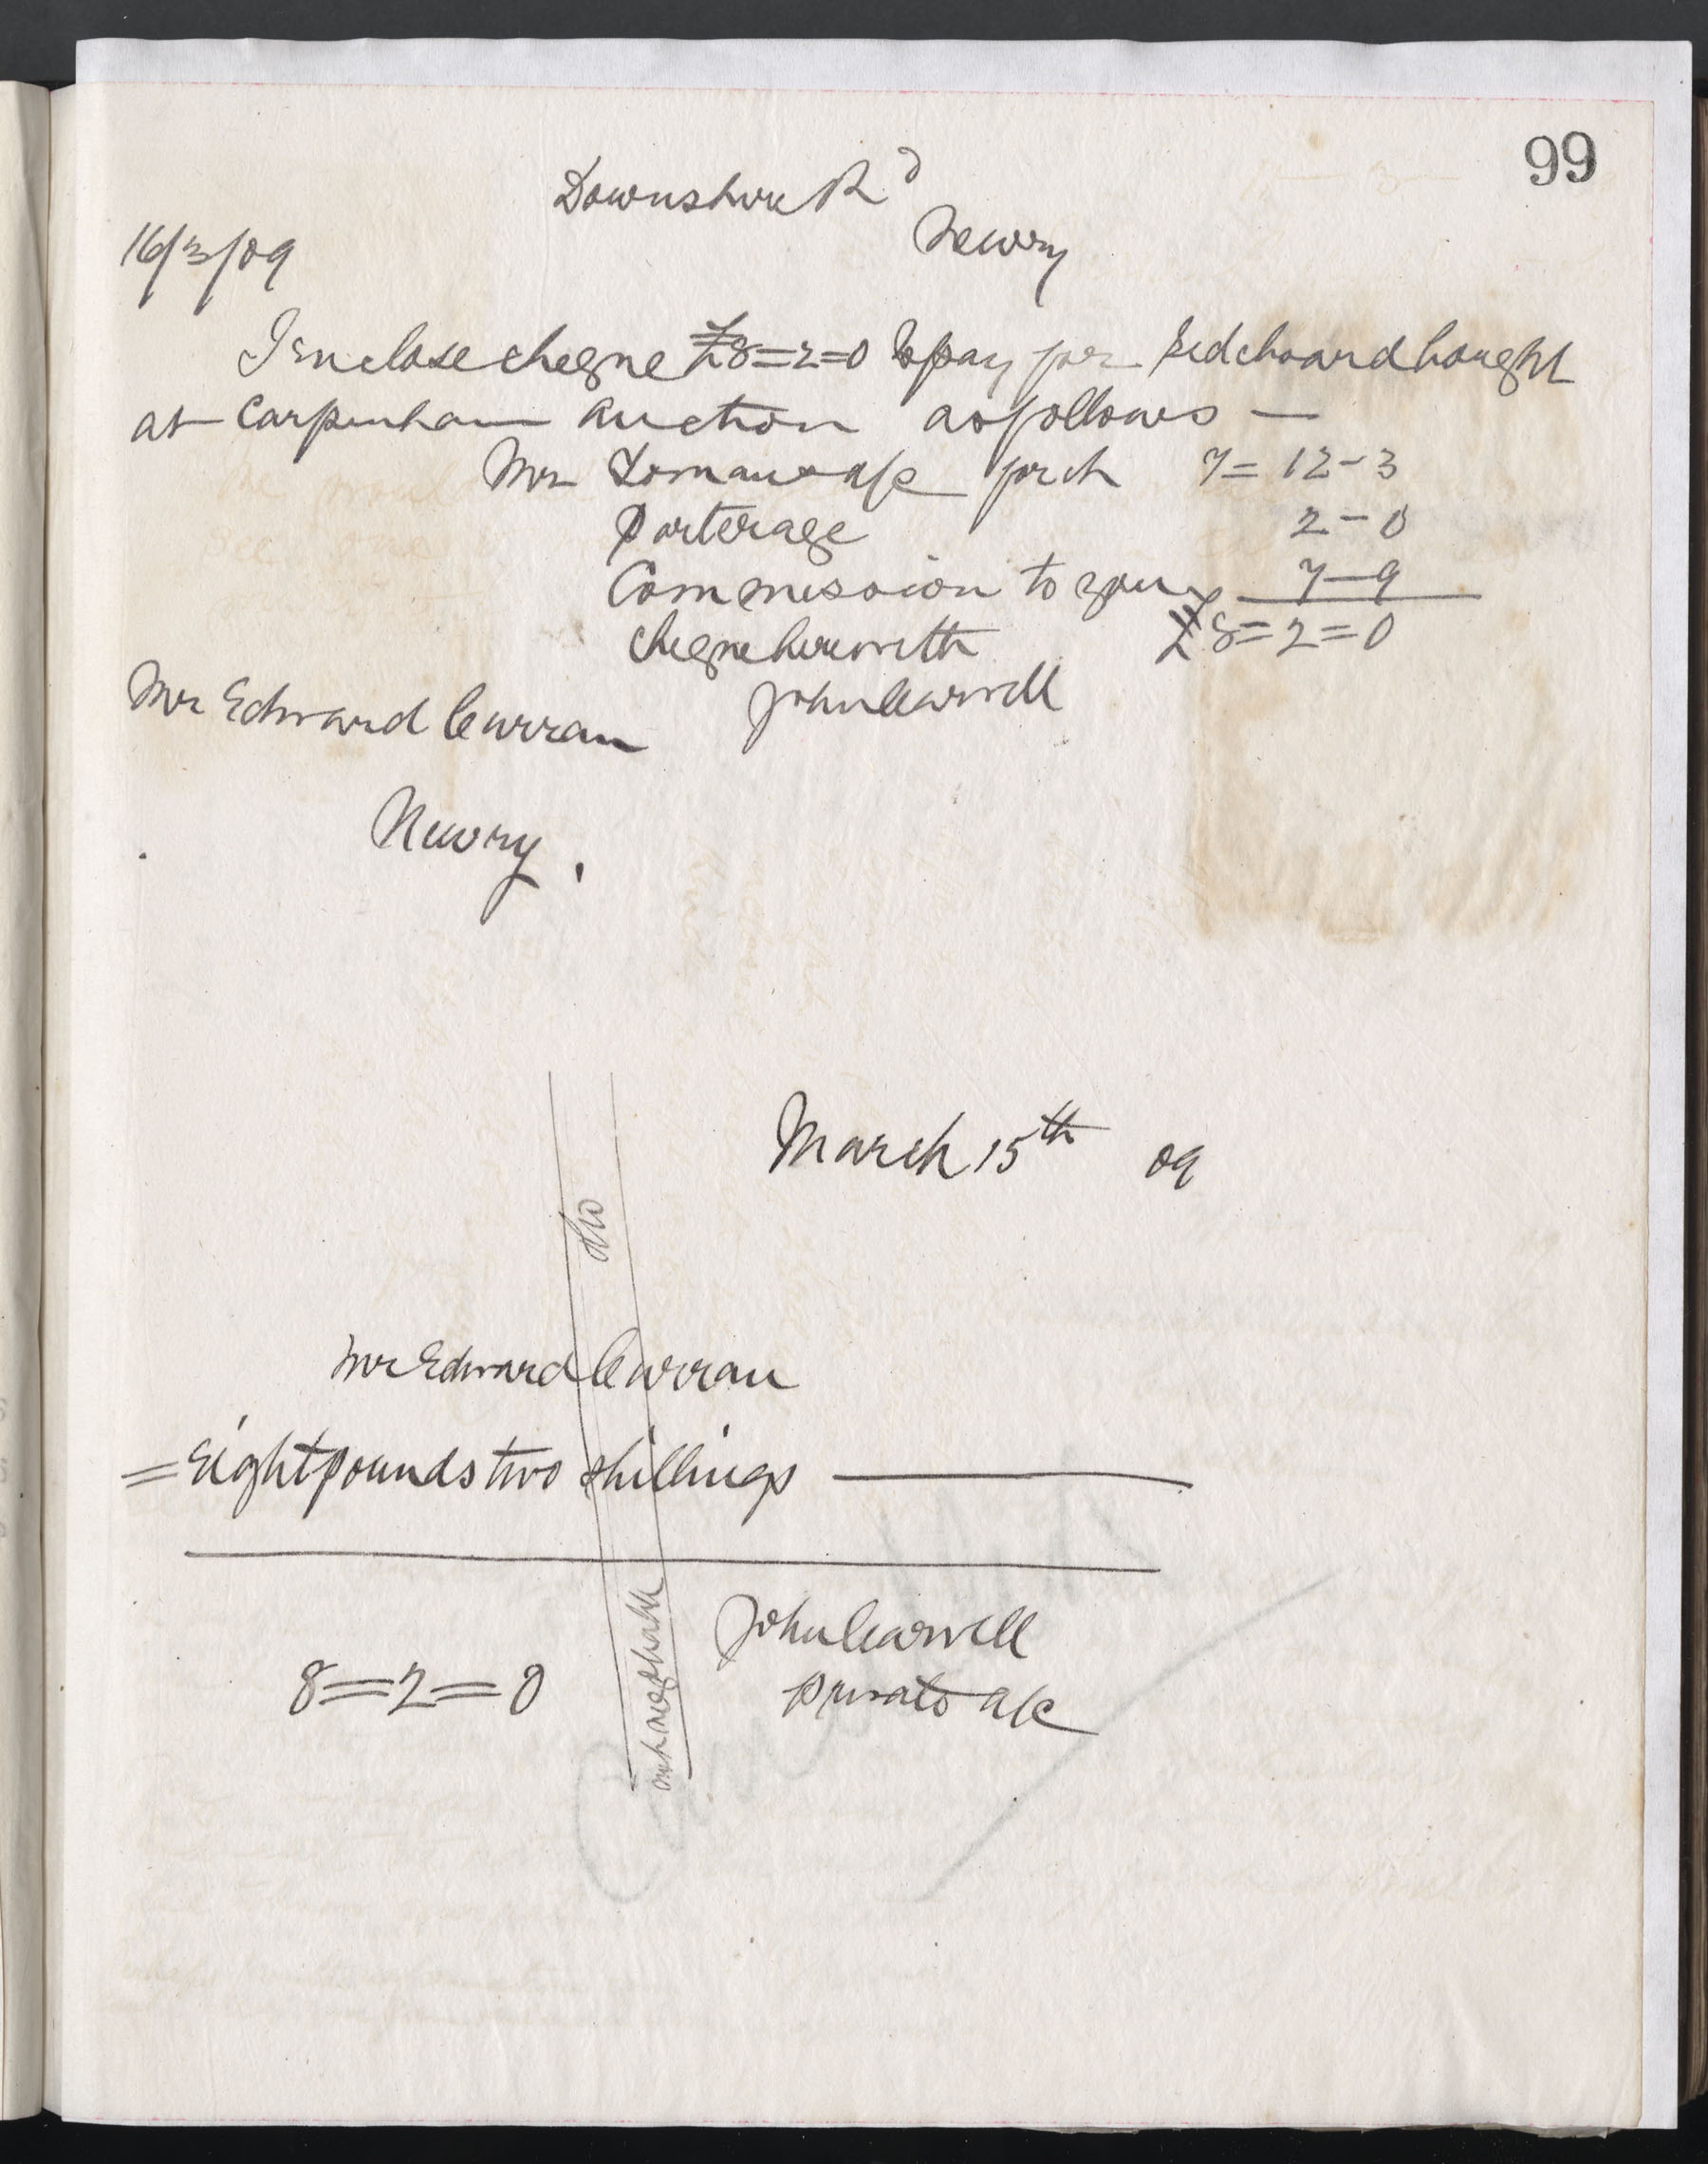 99
Downshire Rd
Newry
16/3/09
I enclose cheque £8=2=0 to pay for sideboard bought
at Carpenham auction as follows —
Mr a/c for it 7=12-3
Porterage 2-0
Commission to you 7-9
cheque herewith £8=2=0
John Carvill
Mr Edward Curran
Newry.
March 15th 09
Mr Edward Curran
= Eight pounds two shillings
8=2=0
John Carvill
private a/c